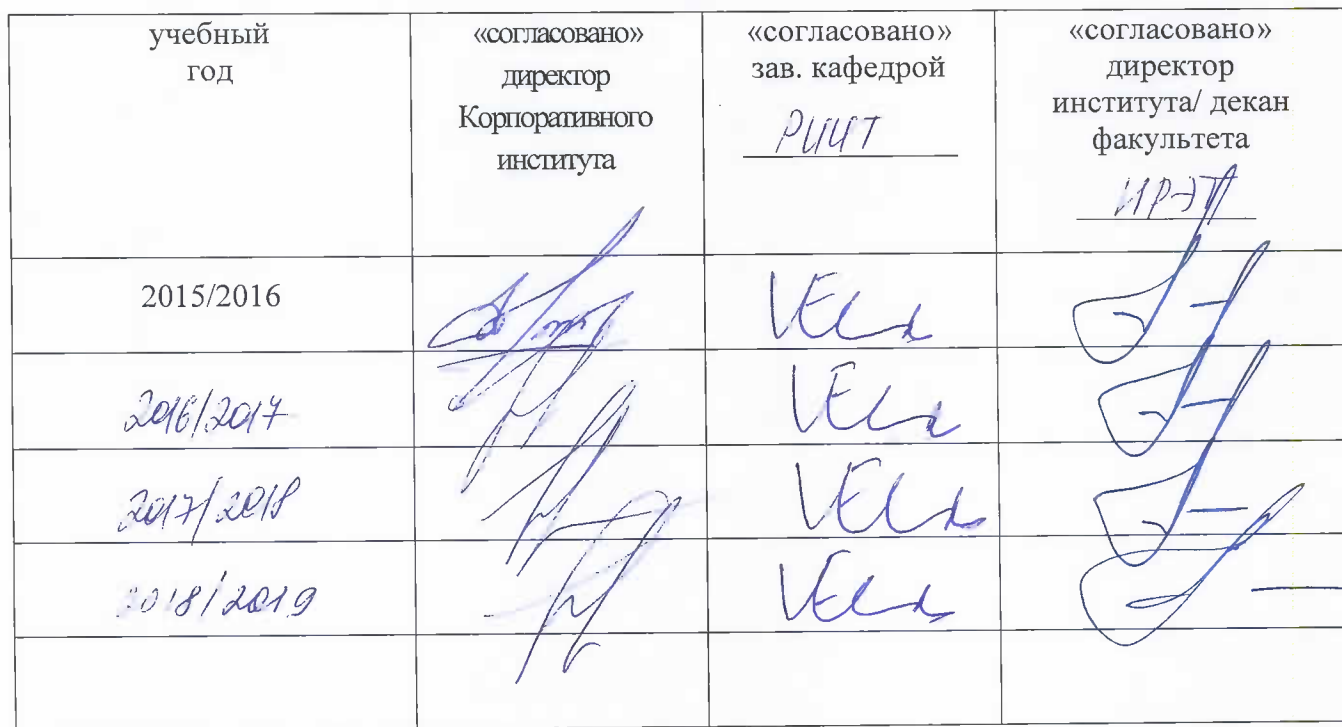 учебный
год
«согласовано»
директор
Корпоративного
института
«согласовано»
зав. кафедрой
РИИТ
«согласовано»
директор
института/ декан
факультета
ИРЭТ
2015/2016
2016/2017
2017/2018
2018/2019